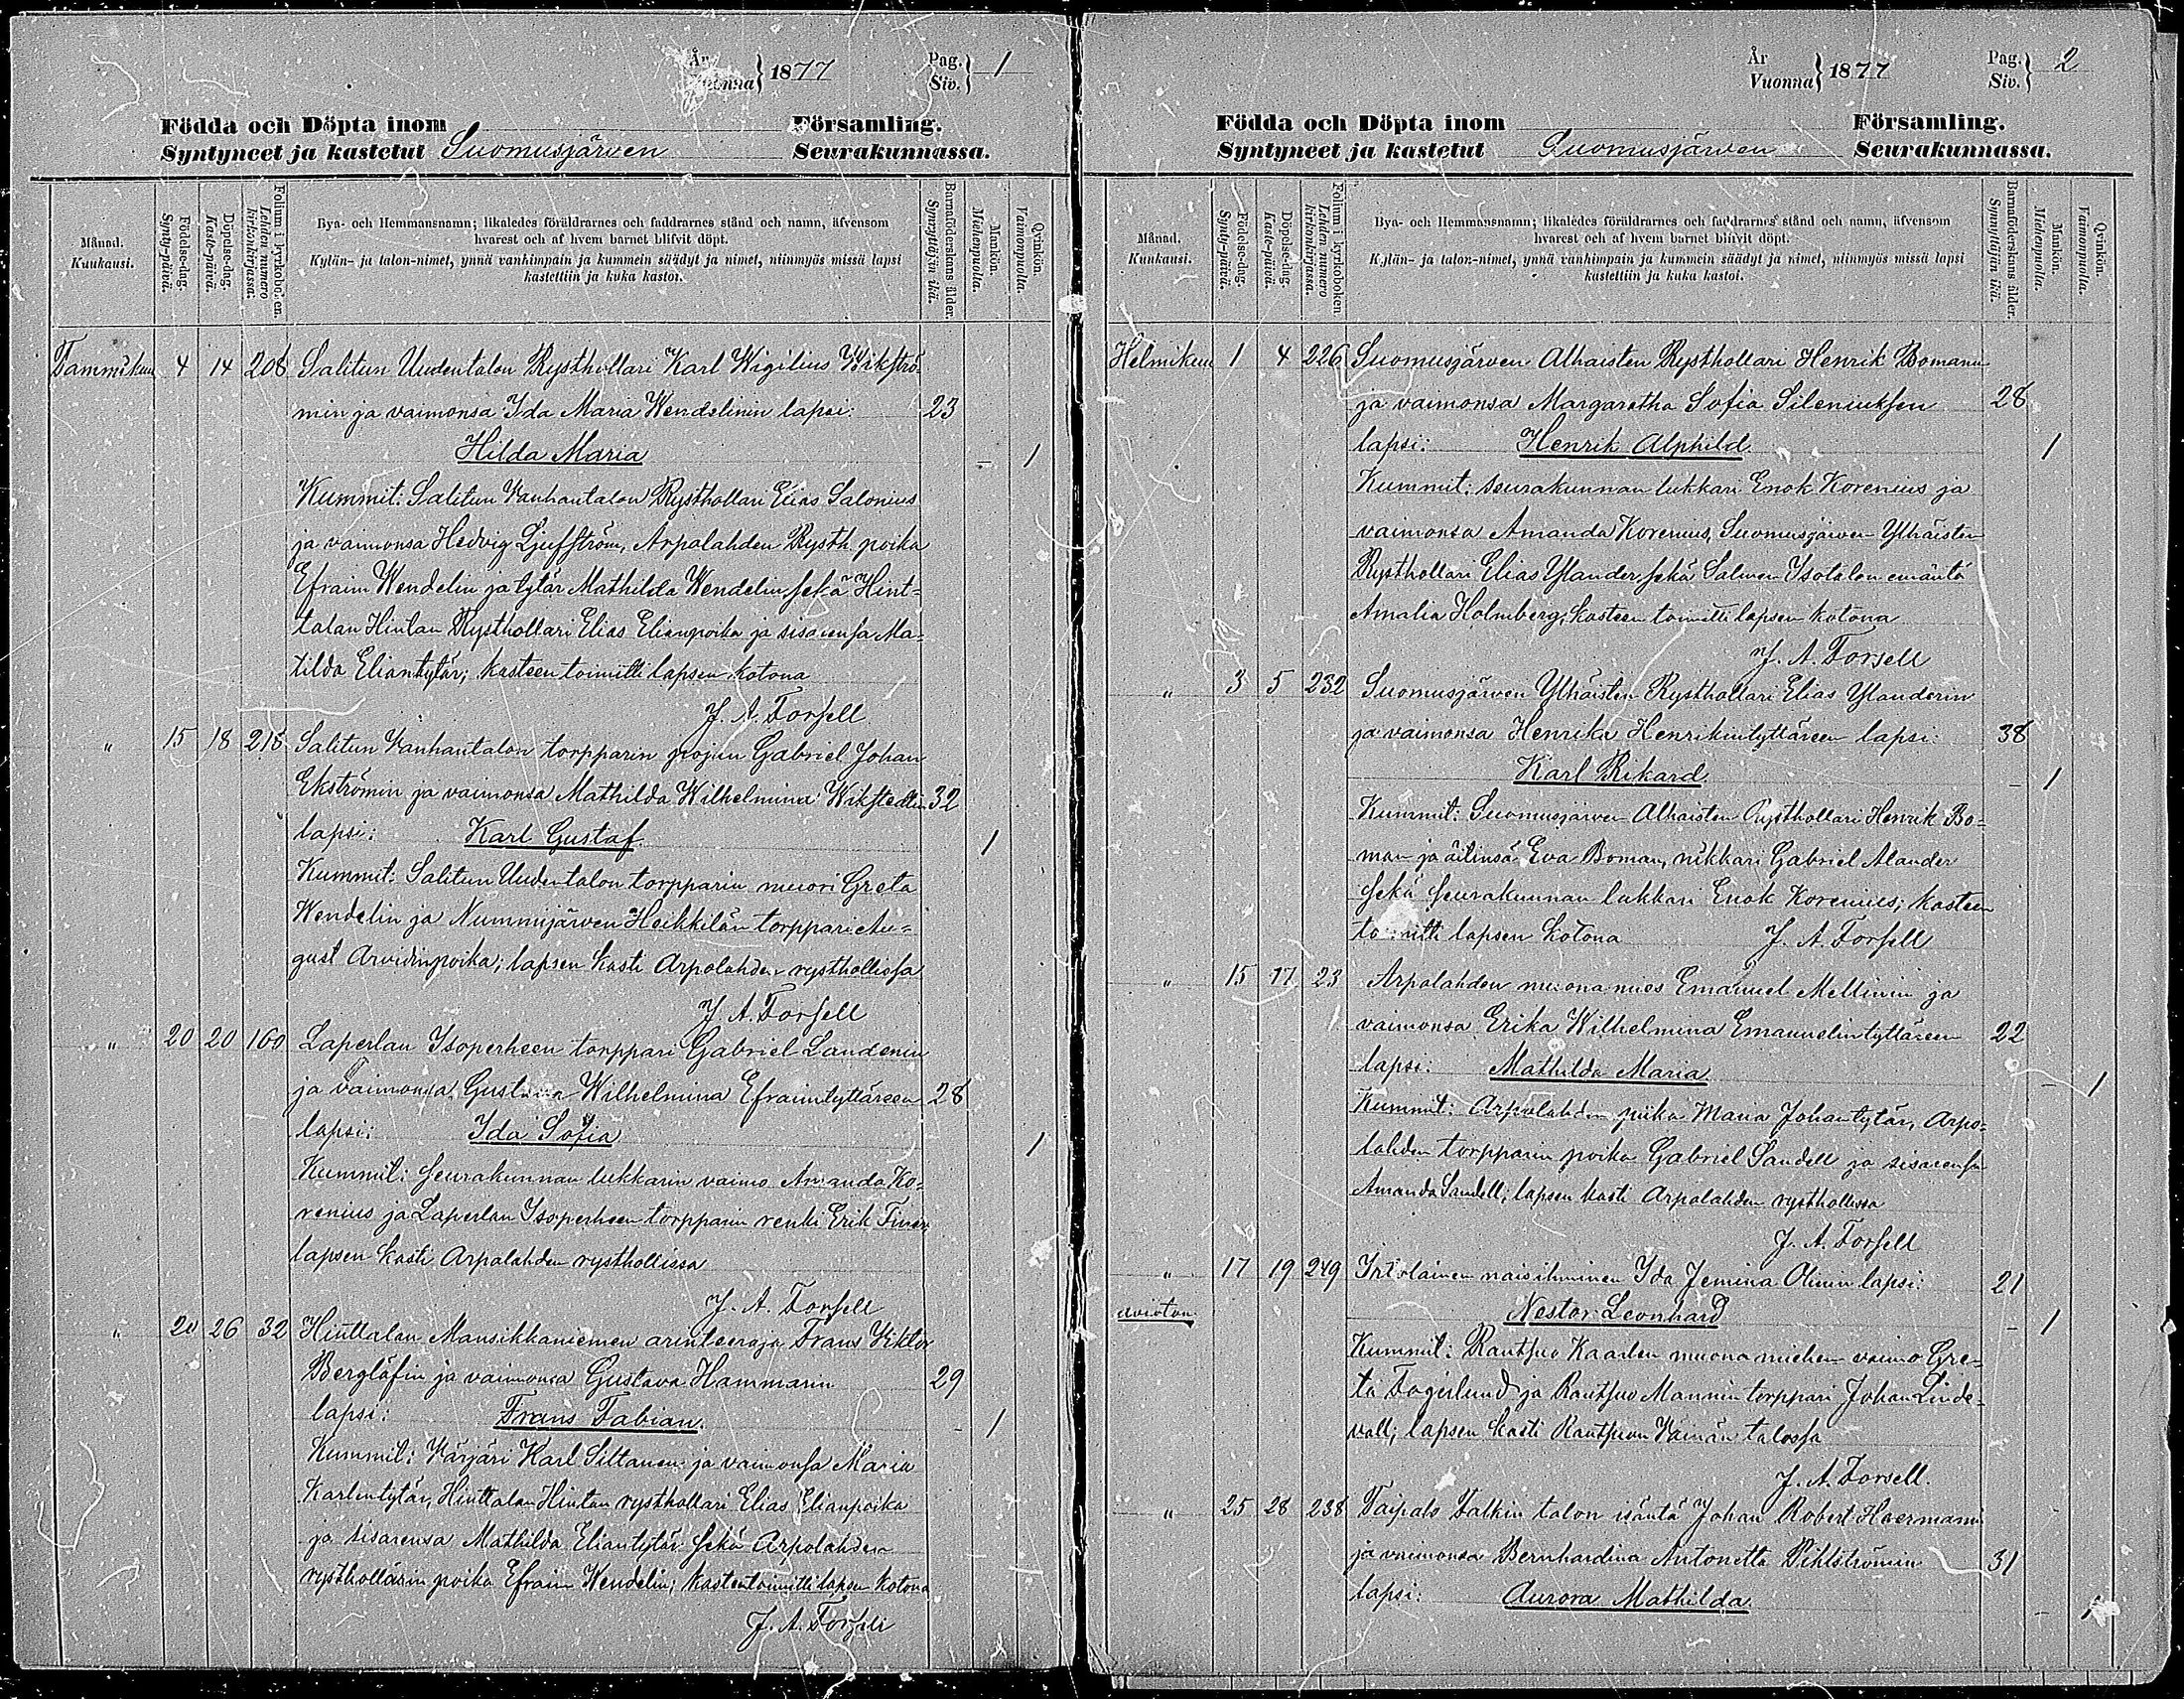 År
Vuonna } 1877
Pag.
Siv. } 1
Födda och Döpta inom Församling.
Syntyneet ja kastetut Suomusjärven Seurakunnassa.
Månad.
Kuukausi.
Födelse-dag.
Synty-päivä.
Döpelse-dag.
Kaste-päivä.
Folium i kyrkoboken.
Lehden numero kirkonkirjassa.
Bya- och Hemmansnamn; likaledes föräldrarnes och faddrarnes stånd och namn, äfvensom
hvarest och af hvem barnet blifvit döpt.
Kylän- ja talon-nimet, ynnä vanhimpain ja kummein säädyt ja nimet, niinmyös missä lapsi
kastettiin ja kuka kastoi.
Barnaföderskans ålder.
Synnyttäjän ikä.
Mankön.
Miehenpuolia.
Qvinkön.
Vaimonpuolia.
Tammikuu 4 14 208 Salitun Uudentalon Rysthollari Karl Wigilius Wikströ
min ja vaimonsa Ida Maria Wendelinin lapsi: 23
Hilda Maria – 1
Kummit: Salitun Vanhantalon Rysthollari Elias Salonius
ja vaimonsa Hedvig Ljufström, Arpalahden Rysth. poika
Efraim Wendelin ja tytär Mathilda Wendelin sekä Hint=
talan Hintan Rysthollari Elias Elianpoika ja sisarensa Ma=
tilda Eliantytär; kasteen toimitti lapsen kotona
J. A. Forsell
" 15 18 218 Salitun Vanhantalon torpparin pojan Gabriel Johan
Ekströmin ja vaimonsa Mathilda Wilhelmina Wikstedtin 32
lapsi: Karl Gustaf 1
Kummit: Salitun Uudentalon torpparin muori Greta
Wendelin ja Nummijärven Heikkilän torppari Au=
gust Arvidinpoika; lapsen kasti Arpalahden rysthollissa
J. A. Forsell
" 20 20 160 Laperlan Isoperheen torppari Gabriel Landenin
ja vaimonsa Gustava Wilhelmina Efraimtyttäreen 28
lapsi: Ida Sofia 1
Kummit: Seurakunnan lukkarin vaimo Amanda Ko=
renius ja Laperlan Isoperheen torpparin renki Erik
lapsen kasti Arpalahden rysthollissa
J. A. Forsell
" 20 26 32 Hinttalan Mansikkaniemen arenteeraja Frans Viktor
Berglöfin ja vaimonsa Gustava Hammarin 29
lapsi: Frans Fabian. – 1
Kummit: Karl Siltanen ja vaimonsa Maria
Karlentytär, Hinttalan Hintan rysthollari Elias Elianpoika
ja sisarensa Mathilda Eliantytär sekä Arpalahden
rysthollarin poika Efraim Wendelin; kasteen toimitti lapsen kotona
J. A. Forsell
År
Vuonna } 1877
Pag.
Siv. } 2
Födda och Döpta inom Församling.
Syntyneet ja kastetut Suomusjärven Seurakunnassa.
Månad.
Kuukausi.
Födelse-dag.
Synty-päivä.
Döpelse-dag.
Kaste-päivä.
Folium i kyrkoboken.
Lehden numero kirkonkirjassa.
Bya- och Hemmansnamn; likaledes föräldrarnes och faddrarnes stånd och namn, äfvensom
hvarest och af hvem barnet blifvit döpt.
Kylän- ja talon-nimet, ynnä vanhimpain ja kummein säädyt ja nimet, niinmyös missä lapsi
kastettiin ja kuka kastoi.
Barnaföderskans ålder.
Synnyttäjän ikä.
Mankön.
Miehenpuolia.
Qvinkön.
Vaimonpuolia.
Helmikuu 1 4 226 Suomusjärven Alhaisten Rysthollari Henrik Bomanin
ja vaimonsa Margaretha Sofia Sileniuksen 28
lapsi: Henrik Alphild 1
Kummit: seurakunnan lukkari Enok Korenius ja
vaimonsa Amanda Korenius, Suomusjärven Ylhäisten
Rysthollari Elias Ylander sekä Salmen Isotalon emäntä
Amalia Holmberg; kasteen toimitti lapsen kotona
J. A. Forsell
" 3 5 232 Suomusjärven Ylhäisten Rysthollari Elias Ylanderin
ja vaimonsa Henrika Henrikintyttäreen lapsi: 38
Karl Rikard – 1
Kummit: Suomusjärven Alhaisten Rysthollari Henrik Bo=
man ja äitinsä Eva Boman, nikkari Gabriel Alander
sekä seurakunnan lukkari Enok Korenius; kasteen
toimitti lapsen kotona J. A. Forsell
" 15 17 23 Arpalahden muonamies Emanuel Mellinin ja
vaimonsa Erika Wilhelmina Emanuelintyttäreen 22
lapsi: Mathilda Maria – 1
Kummit: Arpalahden piika Maria Johantytär, Arpa=
lahden torpparin poika Gabriel Sandell ja sisarensa
Amanda Sandell; lapsen kasti Arpalahden rysthollissa
J. A. Forsell
" 17 19 249 Irtolainen naisihminen Ida Jemina Olinin lapsi: 21
avioton Nestor Leonhard – 1
Kummit: Rautsuo Kaarlen muonamiehen vaimo Gre=
ta Fagerlund ja Rautsuo Mannin torppari Johan Linde=
vall; lapsen kasti Rautsuon Väinän talossa
J. A. Forsell.
" 25 28 238 Taipalo Falkin talon isäntä Johan Robert Hoermanin
ja vaimonsa Bernhardina Antonetta Pihlströmin 31
lapsi: Aurora Mathilda – 1